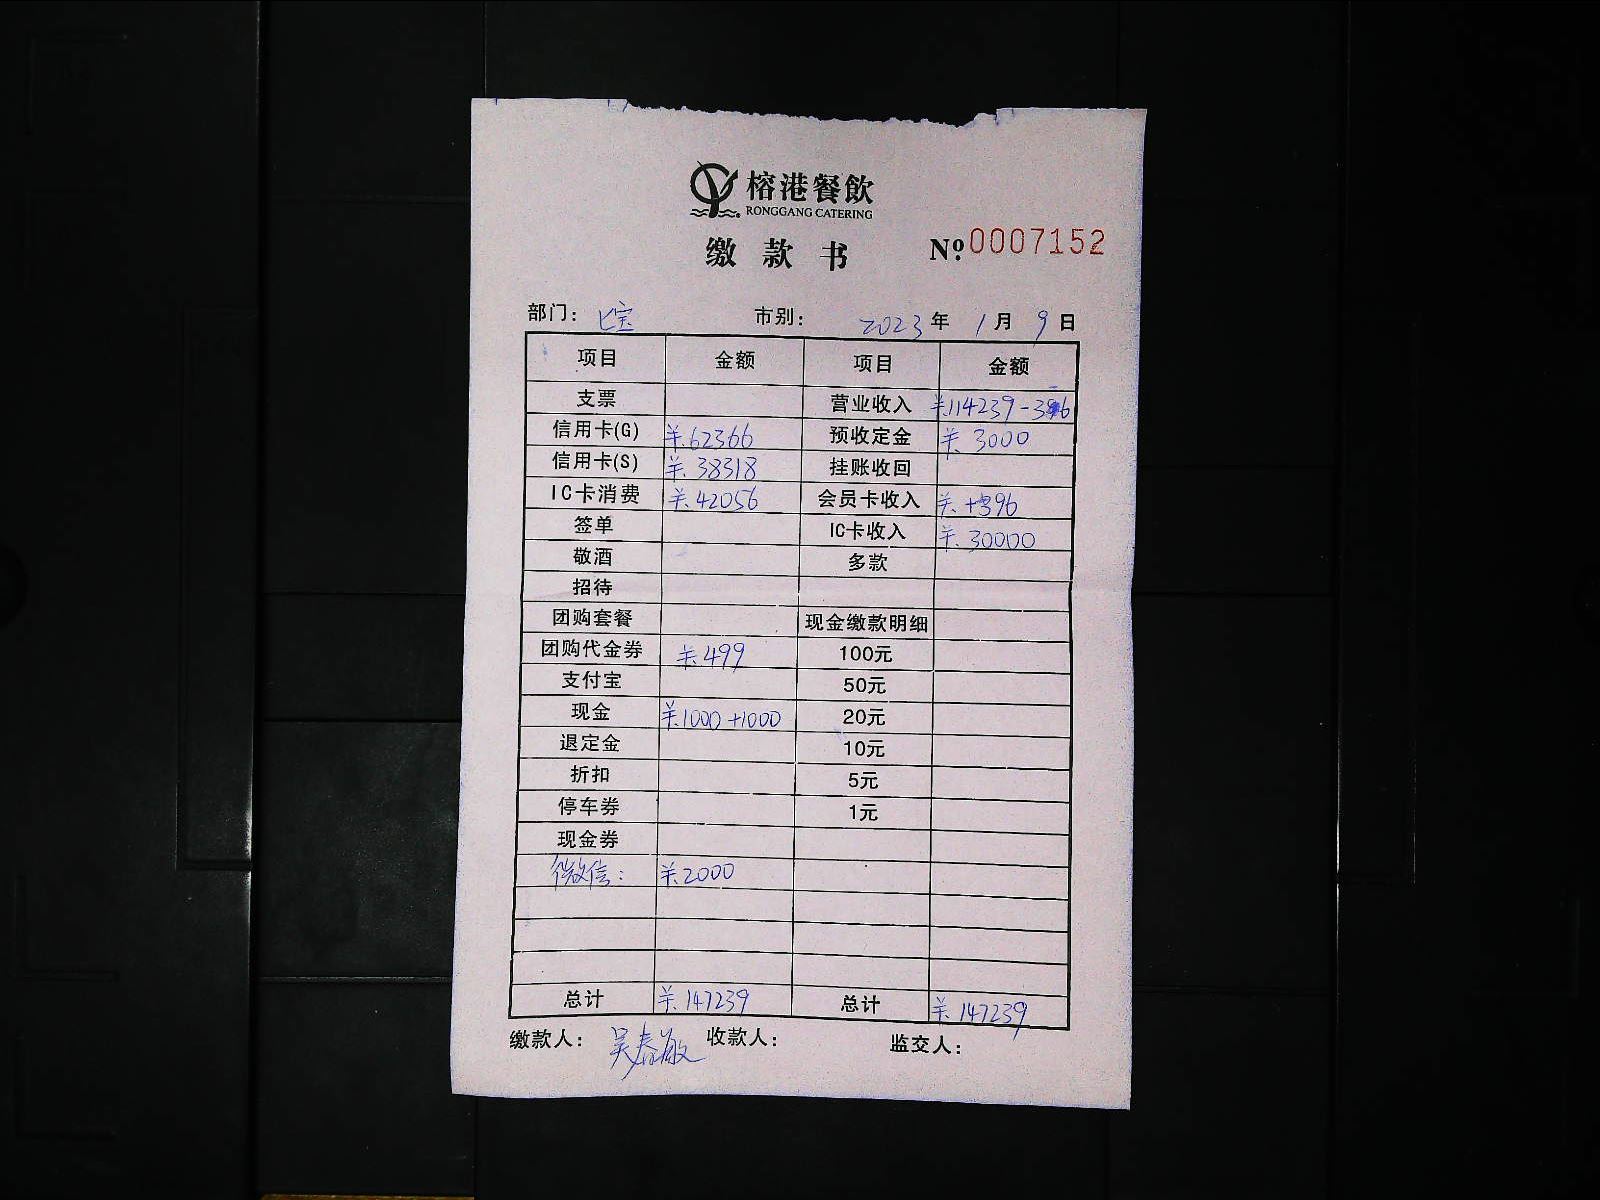 榕港餐飲
RONGGANG CATERING
缴款书 № 0007152
部门： 七宝 市别： 2023年 1月 9日
项目 金额 项目 金额
支票 营业收入 ¥114239-396
信用卡(G) ¥.62366 预收定金 ¥.3000
信用卡(S) ¥.38318 挂账收回
IC卡消费 ¥.42056 会员卡收入 ¥.+396
签单 IC卡收入 ¥.30000
敬酒 多款
招待
团购套餐 现金缴款明细
团购代金券 ¥.499 100元
支付宝 50元
现金 ¥.1000+1000 20元
退定金 10元
折扣 5元
停车券 1元
现金券
微信： ¥2000
总计 ¥.147239 总计 ¥.147239
缴款人： 吴春敏 收款人： 监交人：